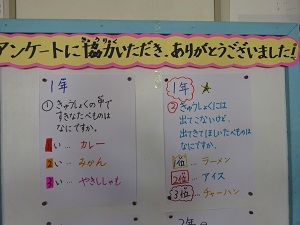 アンケートに協力いただき、ありがとうございました!
きょうりょく
1年
① きゅうしょくの中で
すきなたべものは
なにですか。
1い… カレー
2い… みかん
3い… やきししゃも
1年
② きゅうしょくには
出てこないけど、
出てきてほしいたべものは
なにですか。
1位… ラーメン
2位… アイス
3位… チャーハン
2年